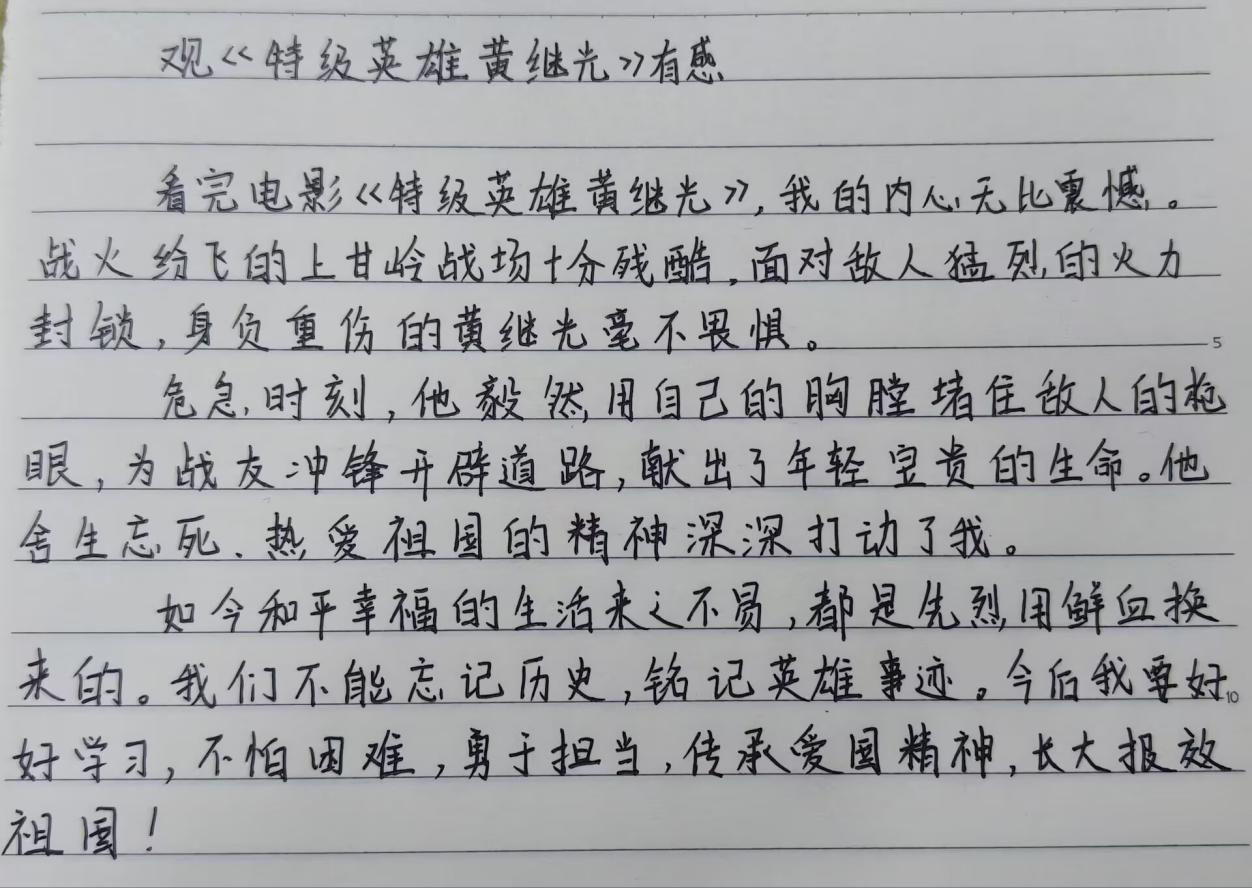 观《特级英雄黄继光》有感
看完电影《特级英雄黄继光》,我的内心无比震憾。
战火纷飞的上甘岭战场十分残酷,面对敌人猛烈的火力
封锁,身负重伤的黄继光毫不畏惧。
5
危急时刻,他毅然用自己的胸膛堵住敌人的枪
眼,为战友冲锋开辟道路,献出了年轻宝贵的生命。他
舍生忘死、热爱祖国的精神深深打动了我。
如今和平幸福的生活来之不易,都是先烈用鲜血换
来的。我们不能忘记历史,铭记英雄事迹。今后我要好
10
好学习,不怕困难,勇于担当,传承爱国精神,长大报效
祖国!